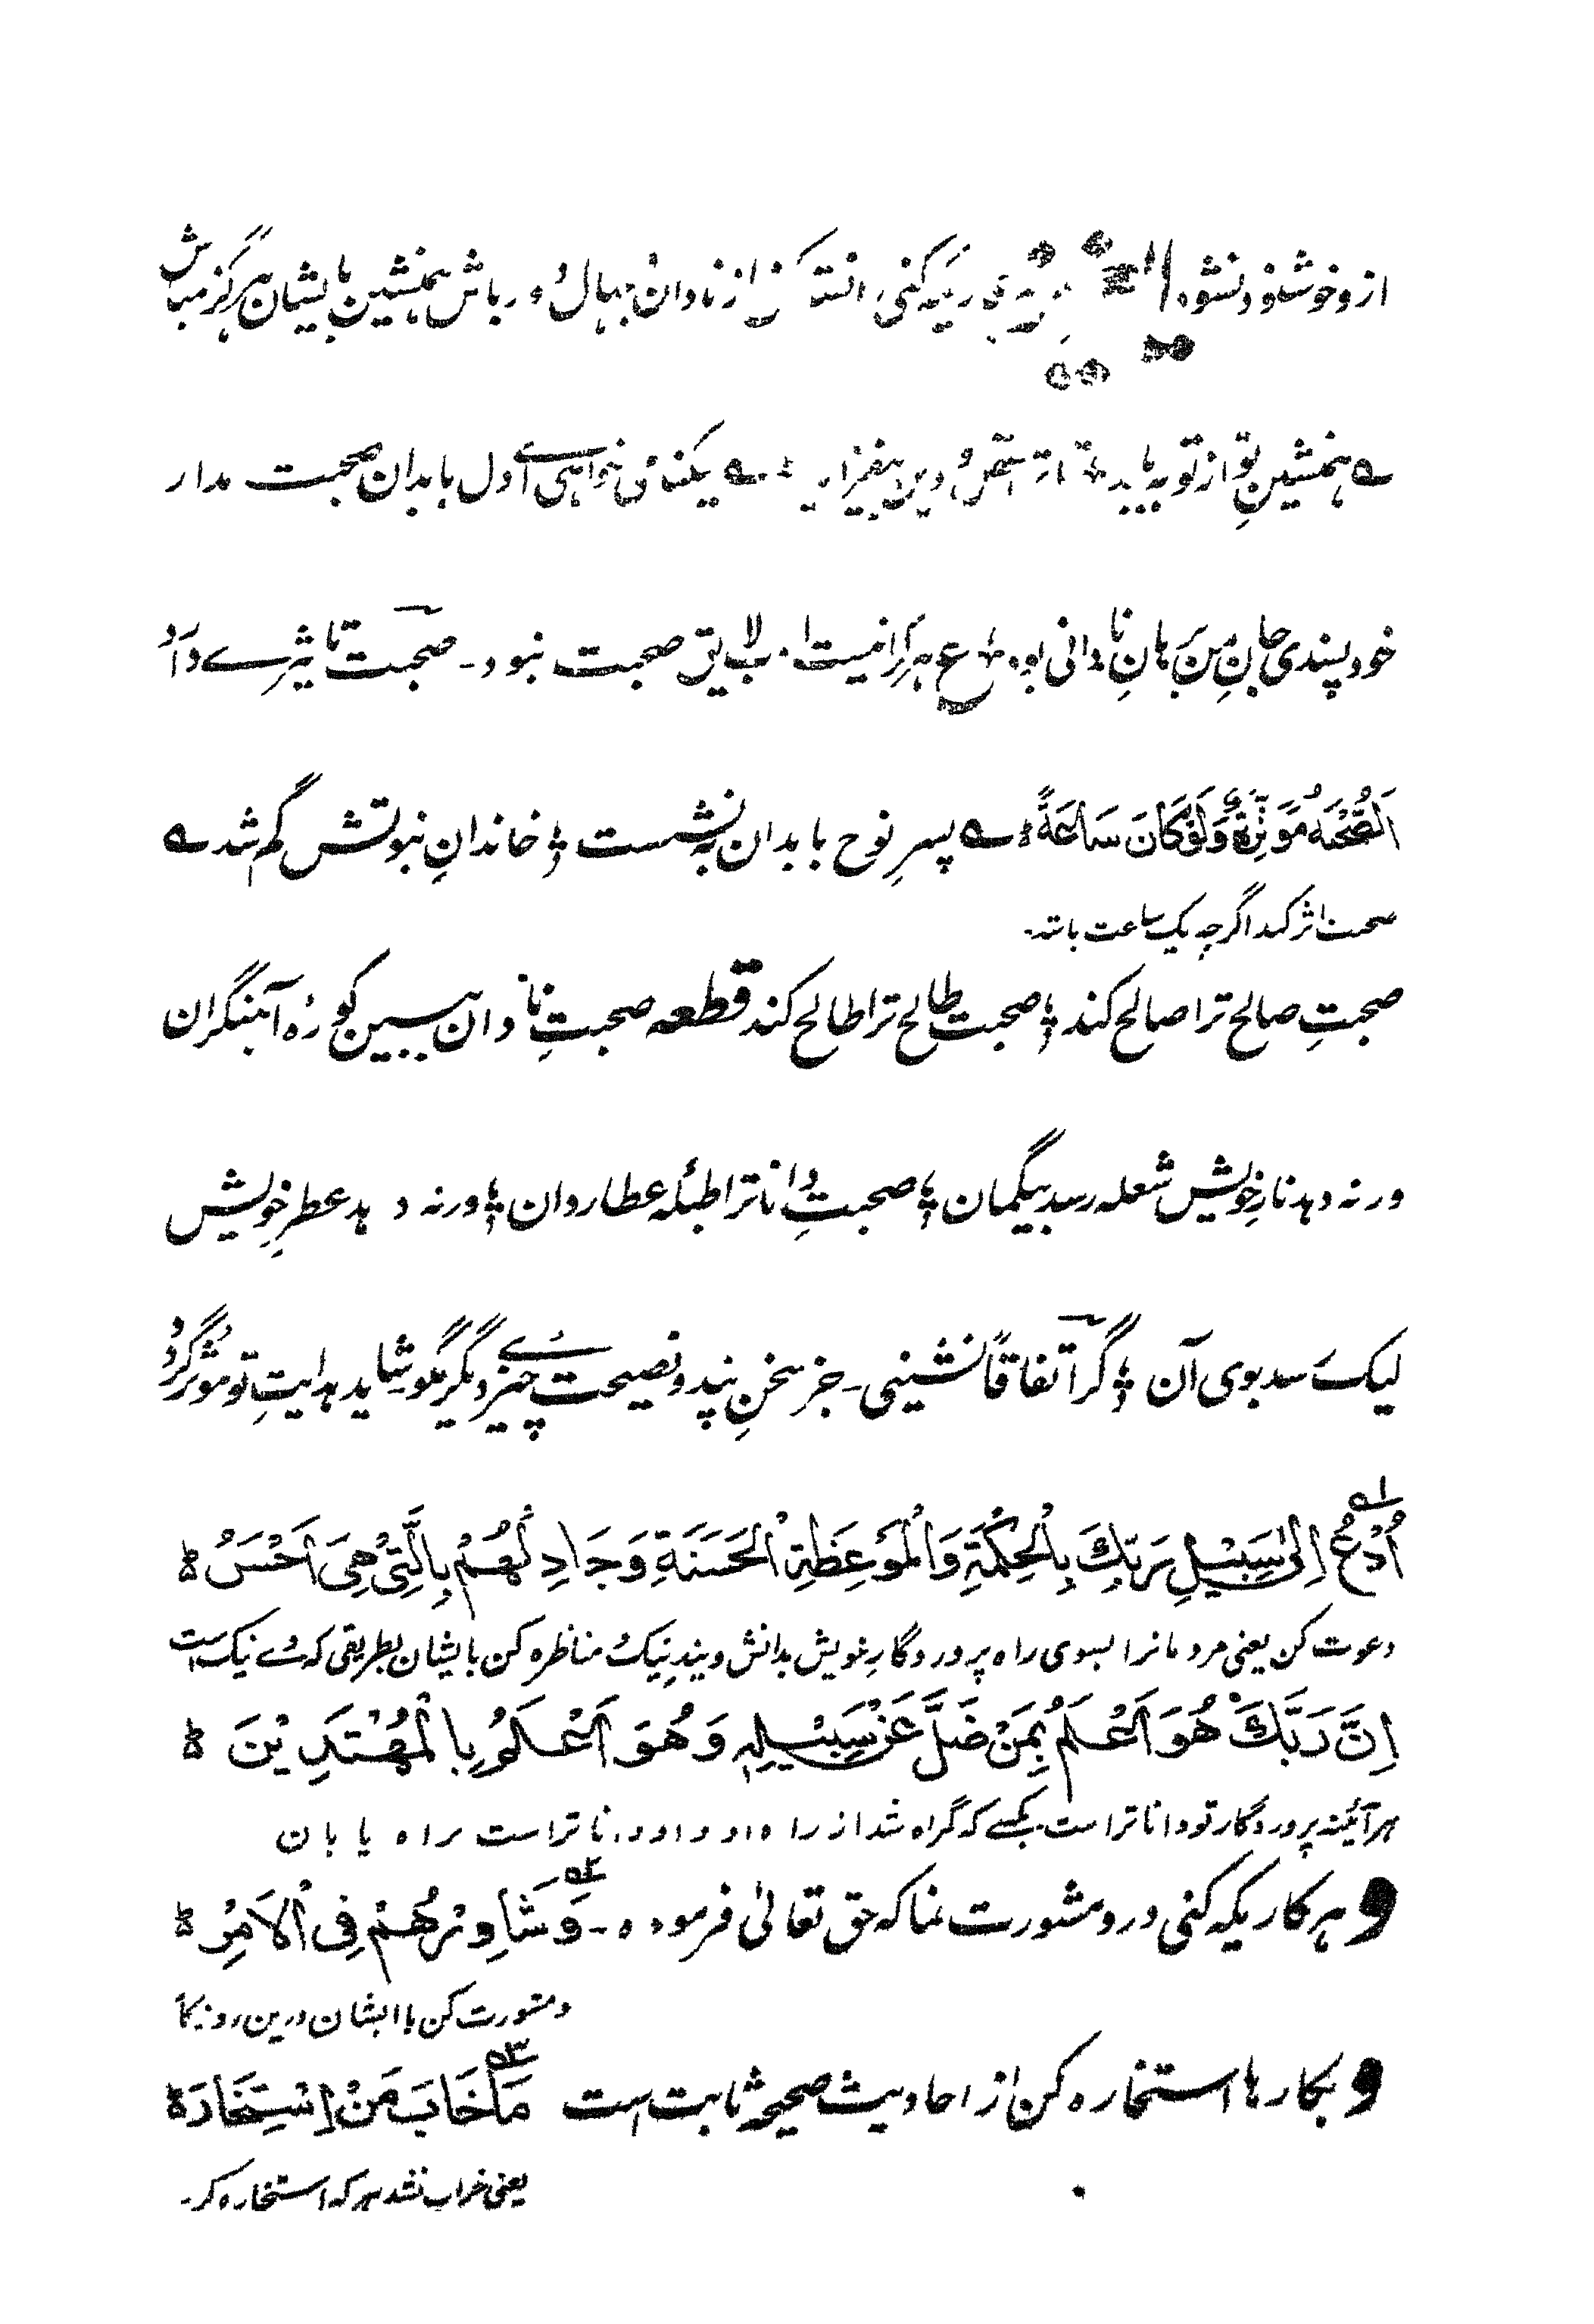 از و خوشنود نشود از نادان و جهال دور باش همنشین بایشان هرگز مباش
ے همنشینِ تو از تو به باید تا ترا عقل و دین بیفزاید ے نیکنامی خواهی اے دل با بدان صحبت مدار
خود پسندی جانِ من برهانِ نادانی بود ع هر کرا نیست ادب لایق صحبت نبود۔ صحبت تاثیرے دارد
اَلصُّحْبَةُ مُؤَثِّرَةٌ وَلَوْ كَانَ سَاعَةً ؕ ے پسرِ نوح با بدان به نشست ؛ خاندانِ نبوتش گم شد ے
صحبت اثر کند اگرچه یک ساعت باشد۔
صحبتِ صالح ترا صالح کند ؛ صحبت طالح ترا طالح کند قطعه صحبتِ نادان ببین کورهٔ آهنگران
ور نه دهد نار خویش شعله رسد بیگمان ؛ صحبتِ دانا ترا طبلهٔ عطار دان ؛ ور نه دهد عطرِ خویش
لیک رسد بوی آن ؛ گر اتفاقاً نشینی۔ جز سخنِ پند و نصیحت چیزے دیگر مگو شاید هدایتِ تو موثر گردد
اُدْعُ اِلٰى سَبِيْلِ رَبِّكَ بِالْحِكْمَةِ وَالْمَوْعِظَةِ الْحَسَنَةِ وَجَادِلْهُمْ بِالَّتِيْ هِيَ اَحْسَنُ ؕ
دعوت کن یعنی مردمانرا بسوی راه پروردگارِ خویش بدانش و پندِ نیک و مناظره کن با ایشان بطریقی که وے نیک است
اِنَّ رَبَّكَ هُوَ اَعْلَمُ بِمَنْ ضَلَّ عَنْ سَبِيْلِهٖ وَهُوَ اَعْلَمُ بِالْمُهْتَدِيْنَ ؕ
هرآئینه پروردگار تو داناتر است بکسے که گمراه شد از راه او و او داناتر است براه یابان
و هر کاریکه کنی درو مشورت نما که حق تعالیٰ فرموده۔ وَشَاوِرْهُمْ فِي الْاَمْرِ ؕ
و مشورت کن با ایشان درین
و بکارها استخاره کن از احادیث صحیحه ثابت است مَا خَابَ مَنْ اِسْتَخَارَ ؕ
یعنی خراب نشد هر که استخاره کرد۔